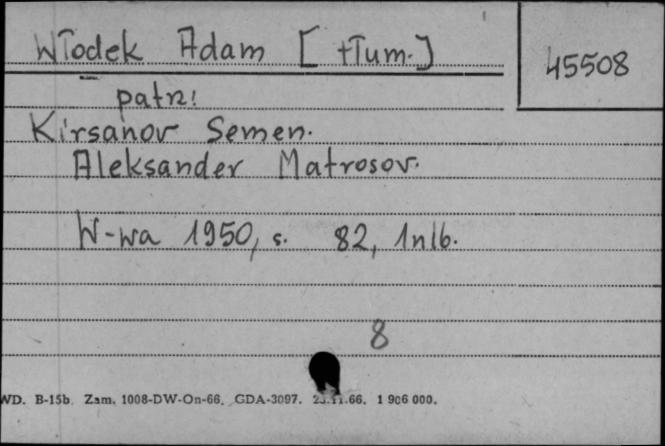 Włodek Adam [tłum.]
45508
patrz:
Kirsanov Semen.
Aleksander Matrosov.
W-wa 1950, s. 82, 1nlb.
8
WD. B-15b. Zam. 1008-DW-On-66. GDA-3097. 23.11.66. 1 906 000.